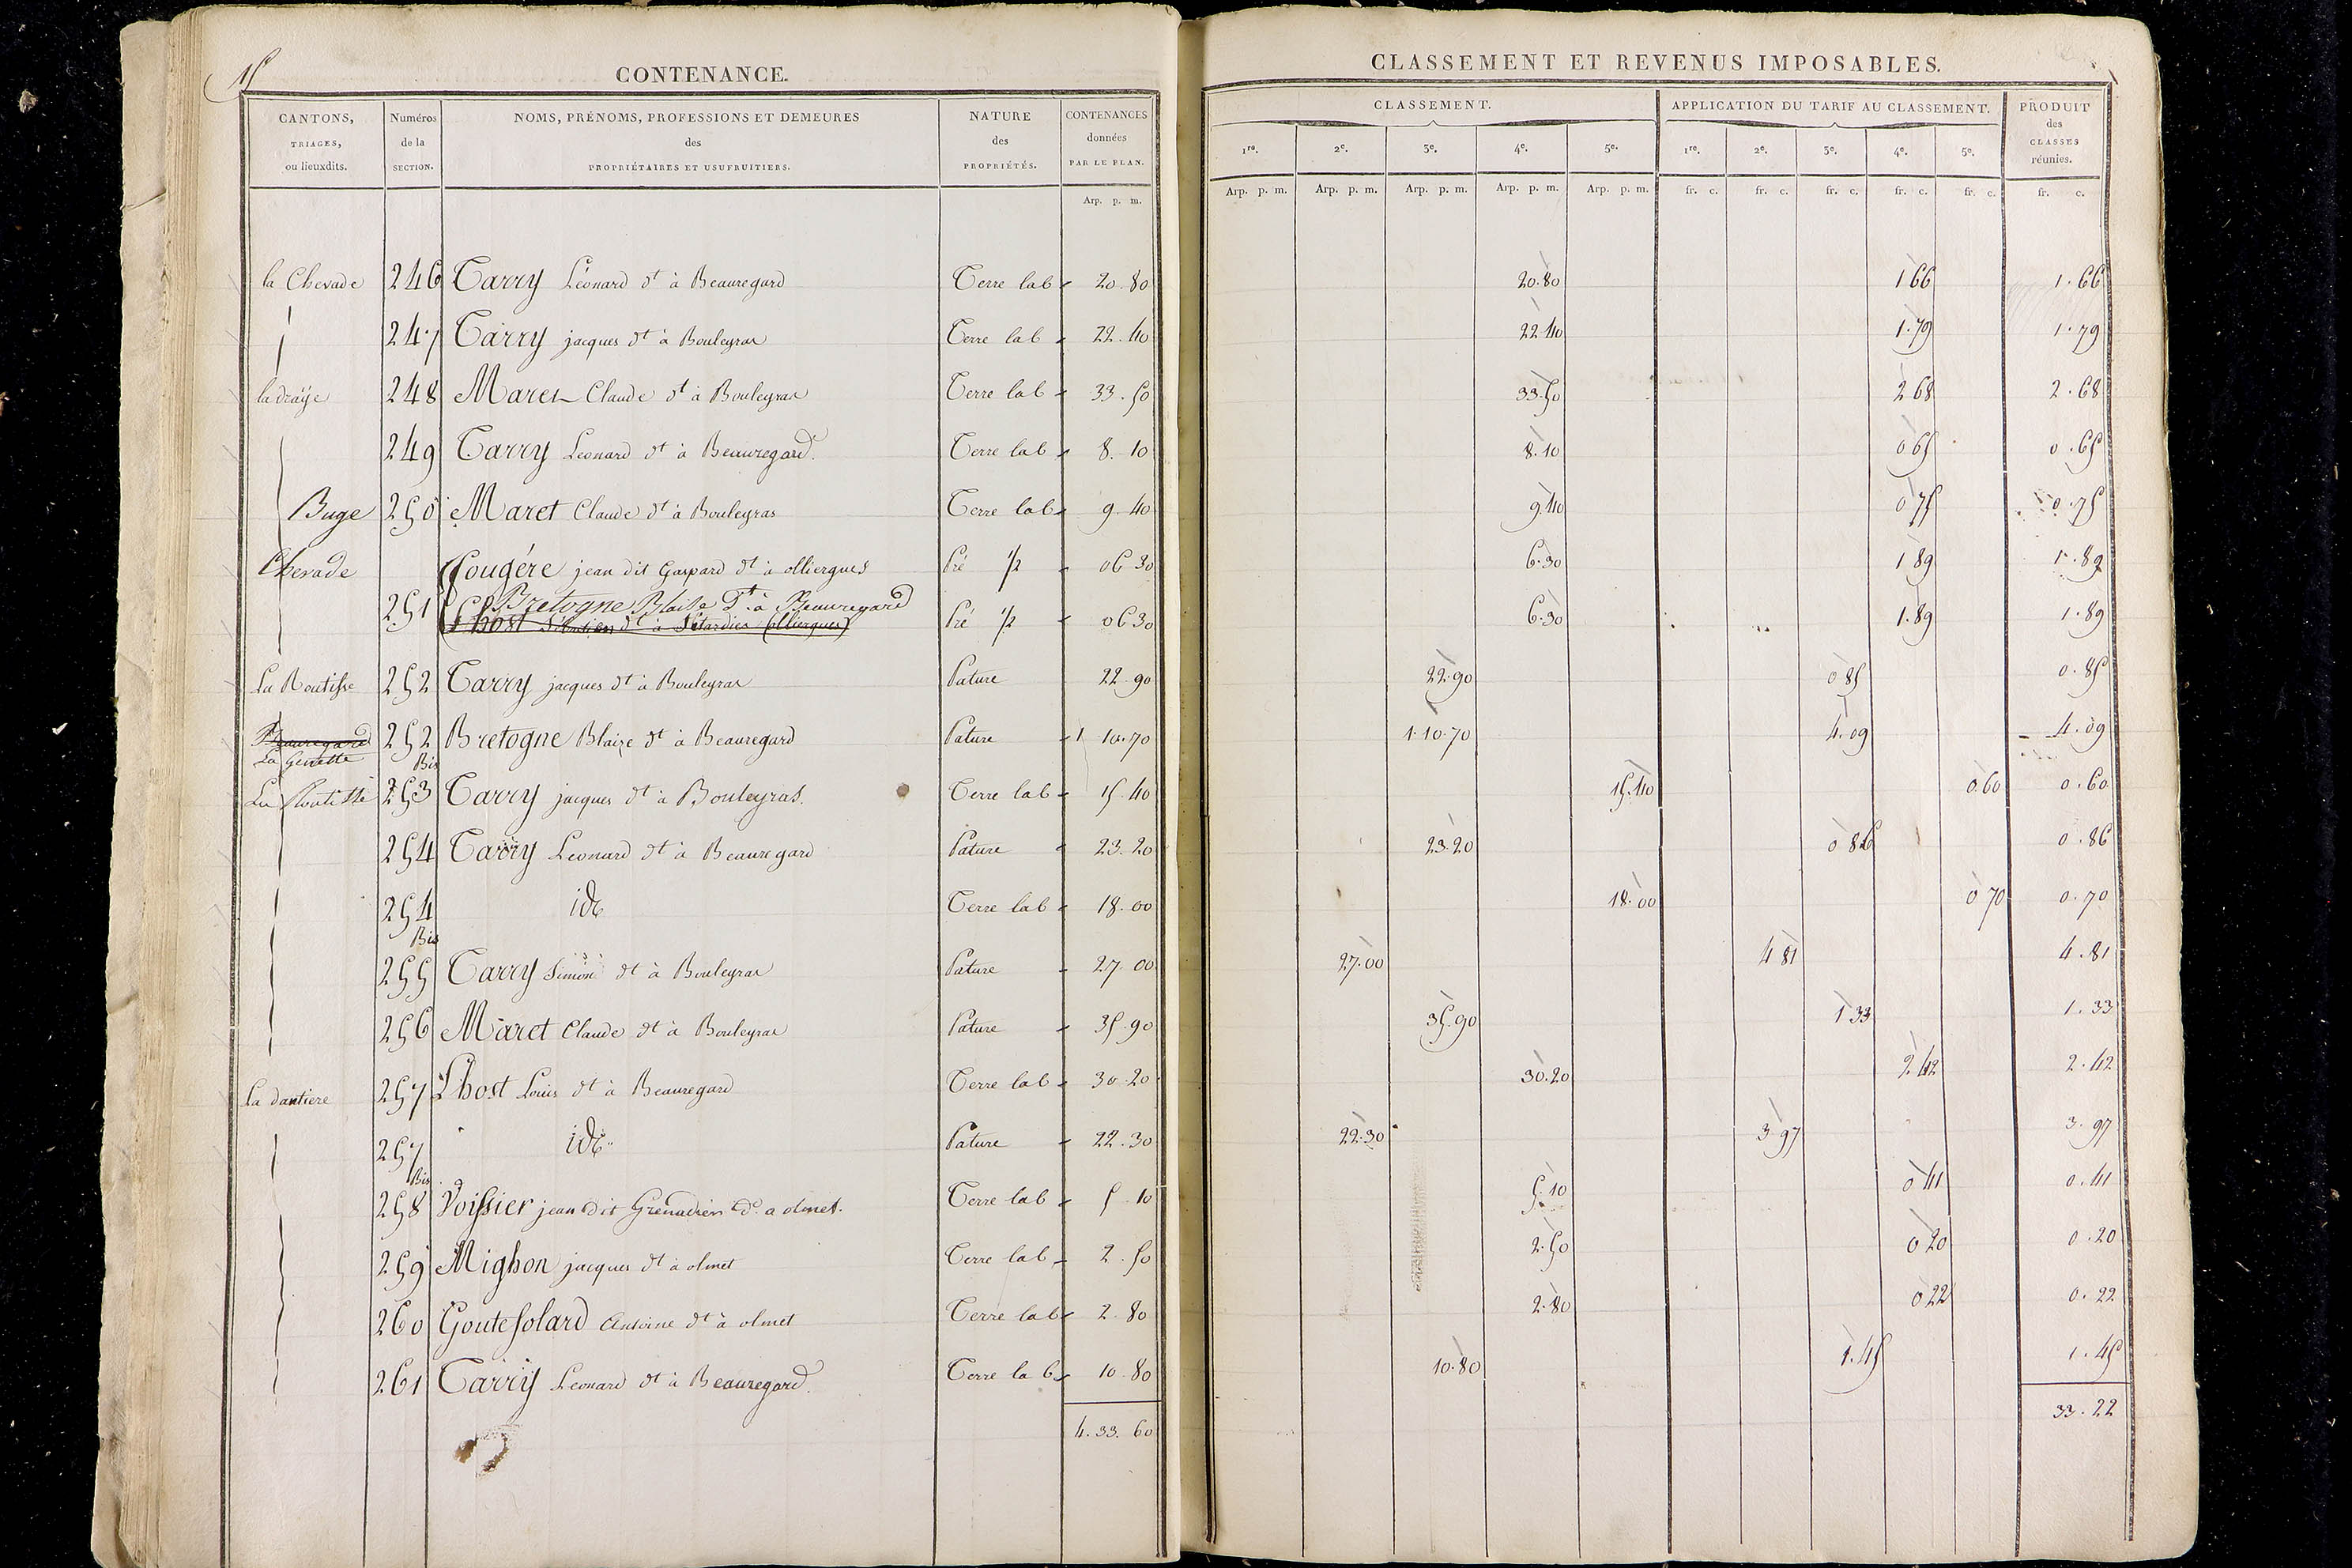 15
CONTENANCE.
CANTONS, TRIAGES, ou lieuxdits.
Numéros de la SECTION.
NOMS, PRÉNOMS, PROFESSIONS ET DEMEURES des PROPRIÉTAIRES ET USUFRUITIERS.
NATURE des PROPRIÉTÉS.
CONTENANCES données PAR LE PLAN.
Arp. p. m.
CLASSEMENT ET REVENUS IMPOSABLES.
CLASSEMENT.
APPLICATION DU TARIF AU CLASSEMENT.
PRODUIT des CLASSES réunies.
1re. 2e. 3e. 4e. 5e. 1re. 2e. 3e. 4e. 5e.
Arp. p. m. Arp. p. m. Arp. p. m. Arp. p. m. Arp. p. m. fr. c. fr. c. fr. c. fr. c. fr. c. fr. c.
la Chevade 246 Tarry Léonard dt à Beauregard Terre lab 20.80 20.80 1 66 1.66
247 Tarry jacques dt à Bouleyras Terre lab 22.40 22.40 1.79 1.79
la draÿe 248 Maret Claude dt à Bouleyras Terre lab 33.50 33.50 2 68 2.68
249 Tarry Léonard dt à Beauregard. Terre lab 8.10 8.10 0 65 0.65
Buge 250 Maret Claude dt à Bouleyras Terre lab 9.40 9.40 0 75 0.75
Chevade Fougére jean dit Gaspard dt à olliergues Pré 1/2 06 30 6.30 1 89 1.89
251 Bretogne Blaise Dt à Beauregard
Lhost Sébastien dt à (olliergues) Pré 1/2 06 30 6.30 1.89 1.89
La Routisse 252 Tarry jacques dt à Bouleyras Pature 22 90 22.90 0 85 0.85
Beauregard 252 Bretogne Blaize dt à Beauregard Pature 1 10.70 1.10.70 4.09 4.09
La Genette Bis
La Routisse 253 Tarry jacques dt à Bouleyras. Terre lab 15.40 15.40 0 60 0.60
254 Tarry Léonard dt à Beauregard Pature 23.20 23.20 0 86 0.86
254 id Terre lab 18.00 18.00 0 70 0.70
Bis
255 Tarry Simon dt à Bouleyras Pature 27.00 27.00 4 81 4.81
256 Maret Claude dt à Bouleyras Pature 35.90 35.90 1 33 1.33
la dantiere 257 Lhost Louis dt à Beauregard Terre lab 30.20 30.20 2.42 2.42
257 id Pature 22.30 22.30 3 97 3.97
Bis
258 Voissier jean dit Grenadier d. a olmet. Terre lab 5 10 5.10 0 41 0.41
259 Mighon jacques dt à olmet Terre lab 2.50 2.50 0 20 0.20
260 Goutesolard Antoine dt à olmet Terre lab 2.80 2.80 0 22 0.22
261 Tarry Léonard dt à Beauregard. Terre lab 10 80 10.80 1.45 1.45
4.33.60 33.22